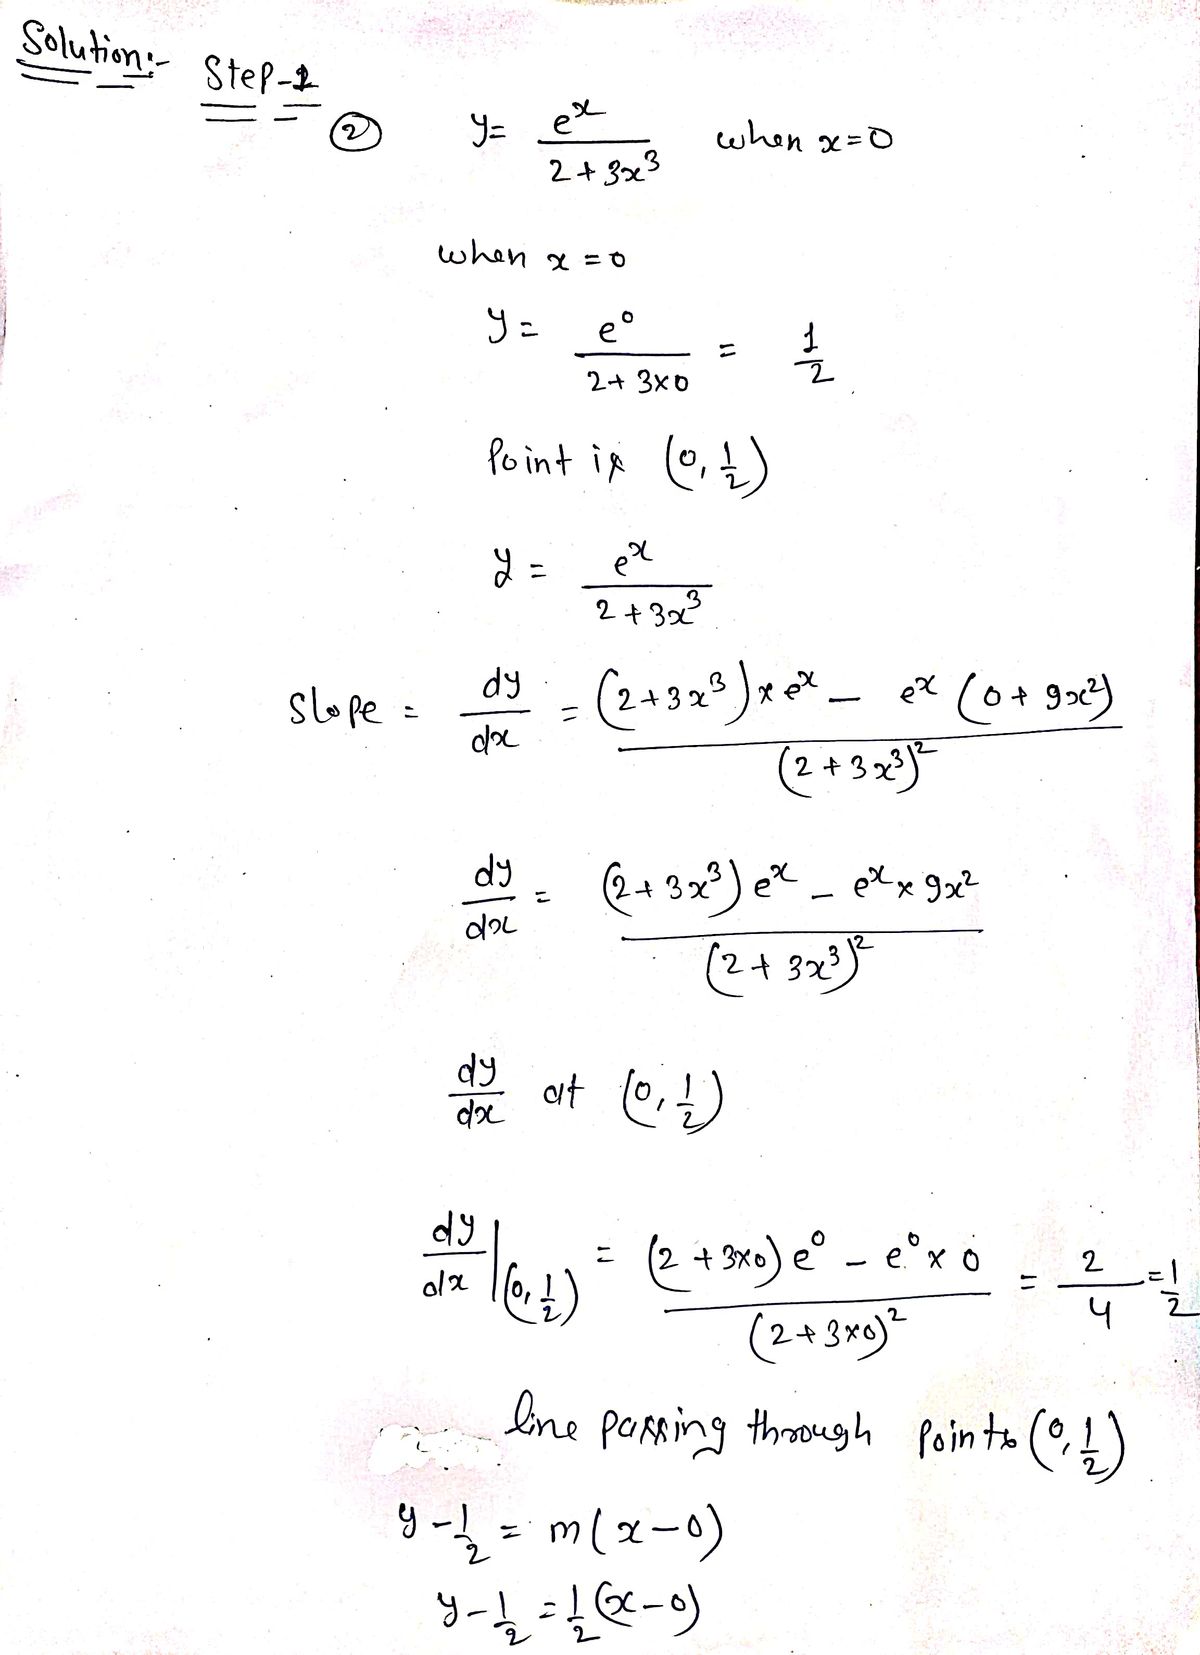 Solution:-
Step-1
② y = e^x / (2 + 3x³) when x = 0
when x = 0
y = e⁰ / (2 + 3×0) = 1/2
Point is (0, 1/2)
y = e^x / (2 + 3x³)
Slope = dy/dx = ((2 + 3x³) × e^x − e^x (0 + 9x²)) / (2 + 3x³)²
dy/dx = ((2 + 3x³) e^x − e^x × 9x²) / (2 + 3x³)²
dy/dx at (0, 1/2)
dy/dx |(0, 1/2) = ((2 + 3×0) e⁰ − e⁰ × 0) / (2 + 3×0)² = 2/4 = 1/2
line passing through points (0, 1/2)
y − 1/2 = m(x − 0)
y − 1/2 = 1/2 (x − 0)